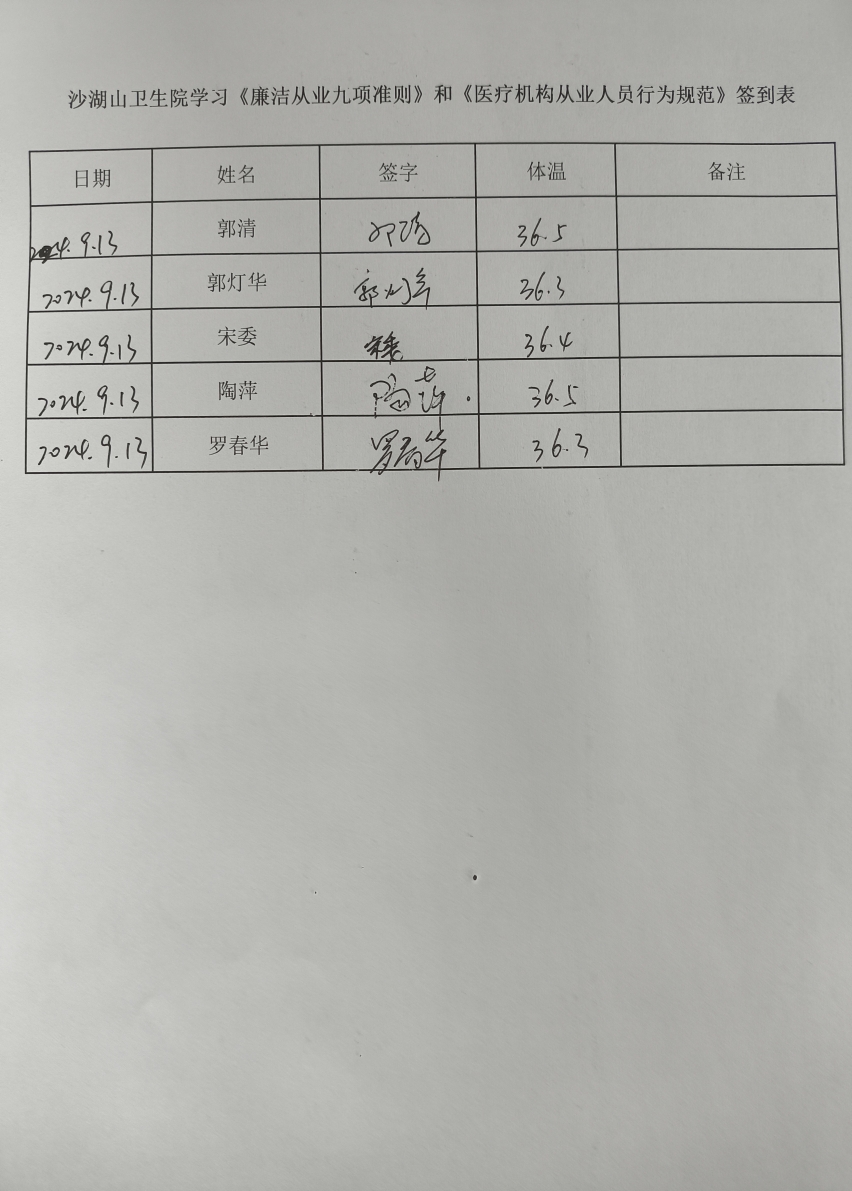 沙湖山卫生院学习《廉洁从业九项准则》和《医疗机构从业人员行为规范》签到表
日期 姓名 签字 体温 备注
2024.9.13 郭清 36.5
2024.9.13 郭灯华 郭灯华 36.3
2024.9.13 宋委 宋委 36.4
2024.9.13 陶萍 陶萍 36.5
2024.9.13 罗春华 罗春华 36.3